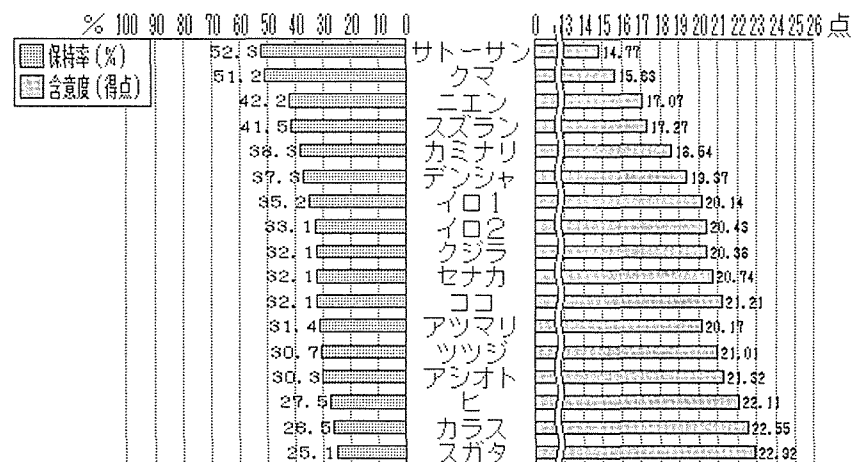 % 100 90 80 70 60 50 40 30 20 10 0 0 13 14 15 16 17 18 19 20 21 22 23 24 25 26 点
保持率(%)
含意度(得点)
52.3 サトーサン 14.77
51.2 クマ 15.63
42.2 ニエン 17.07
41.5 スズラン 17.27
38.3 カミナリ 18.54
37.3 デンシャ 19.37
35.2 イロ1 20.14
33.1 イロ2 20.43
32.1 クジラ 20.36
32.1 セナカ 20.74
32.1 ココ 21.21
31.4 アツマリ 20.17
30.7 ツツジ 21.01
30.3 アシオト 21.32
27.5 ヒ 22.11
26.5 カラス 22.55
25.1 スガタ 22.92